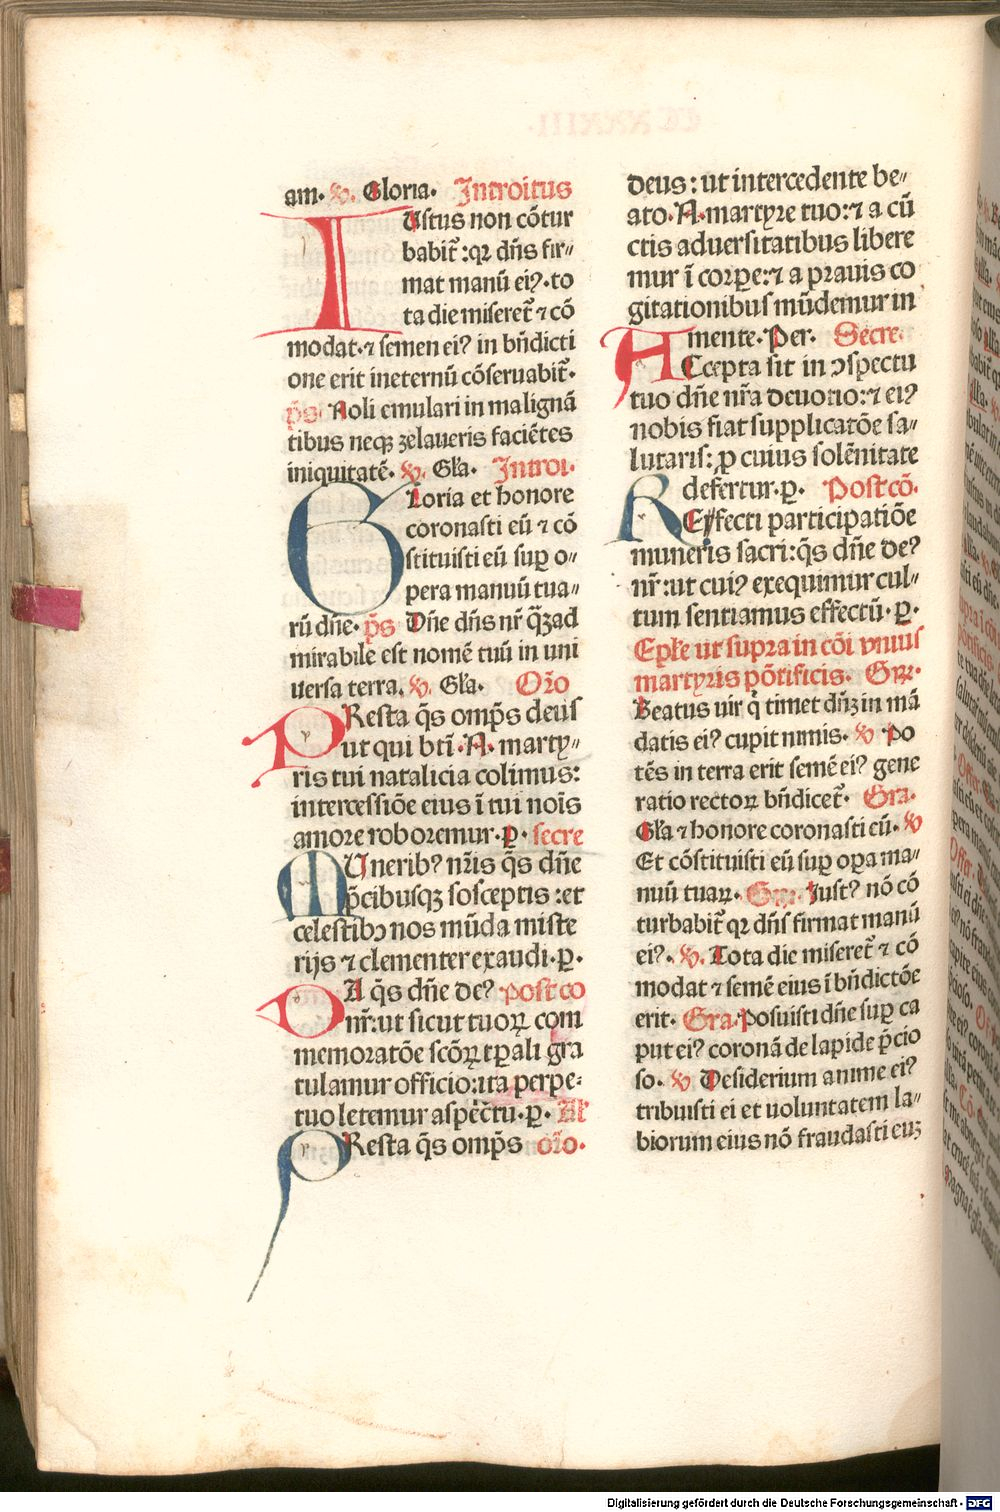 am. ℣. Gloria. Introitus
IUstus non cõtur
babit᷑ :qꝛ dñs fir⸗
mat manũ eiꝰ.to
ta die miseret᷑ ⁊ cõ
modat.⁊ semen eiꝰ in bñdicti
one erit ineternũ cõseruabit᷑.
p̃s Noli emulari in malignã
tibus neqꝫ zelaueris faciẽtes
iniquitatẽ. ℣. Gl'a. Introi.
GLoria et honore
coronasti eũ ⁊ cõ
stituisti eũ suꝑ o⸗
pera manuũ tua⸗
rũ dñe. p̃s Dñe dñs nr̃ q̃ꝫad
mirabile est nomẽ tuũ in uni
uersa terra. ℣. Gl'a. Or̃o
PResta q̃s omp̃s deus
ut qui bti̇̃ .N. marty⸗
ris tui natalicia colimus:
intercessiõe eius ĩ tui noi̇̃s
amore roboremur.ꝑ. secre
MUneribꝰ nr̃is q̃s dñe
p̃cibusqꝫ sosceptis :et
celestibꝫ nos mũda miste
rijs ⁊ clementer exaudi.ꝑ.
DA q̃s dñe deꝰ post co
nr̃:ut sicut tuoꝝ com
memoratõe scõꝝ tꝑali gra
tulamur officio:ita perpe⸗
tuo letemur aspectu.ꝑ. Al'
PResta q̃s omp̃s or̃o.
deus: ut intercedente be⸗
ato.N.martyre tuo:⁊ a cũ
ctis aduersitatibus libere
mur ĩ corꝑe:⁊ a prauis co
gitationibus mũdemur in
mente.Per. Secre.
ACcepta sit in ꝯspectu
tuo dñe nr̃a deuotio:⁊ eiꝰ
nobis fiat supplicatõe sa⸗
lutaris: ꝓ cuius solẽnitate
defertur.ꝑ. Post cõ.
REffecti participatiõe
muneris sacri:q̃s dñe deꝰ
nr̃:ut cuiꝰ exequimur cul⸗
tum sentiamus effectũ.ꝑ.
Epl'e ut supra in cõi vnius
martyris põtificis. Gꝛ.
Beatus uir q̇ timet dñꝫ in mã
datis eiꝰ cupit nimis. ℣ Po
tẽs in terra erit semẽ eiꝰ gene
ratio rectoꝝ bñdicet᷑. Gra.
Gl'a ⁊ honore coronasti eũ. ℣
Et cõstituisti eũ suꝑ oꝑa ma⸗
nuũ tuaꝝ. Gꝛ. Iustꝰ nõ cõ
turbabit᷑ qꝛ dñs firmat manũ
eiꝰ. ℣. Tota die miseret᷑ ⁊ cõ
modat ⁊ semẽ eius ĩ bñdictõe
erit. Gra. Posuisti dñe suꝑ ca
put eiꝰ coronã de lapide p̃cio
so. ℣ Desiderium anime eiꝰ
tribuisti ei et uoluntatem la⸗
biorum eius nõ fraudasti euꝫ
Digitalisierung gefördert durch die Deutsche Forschungsgemeinschaft - DFG